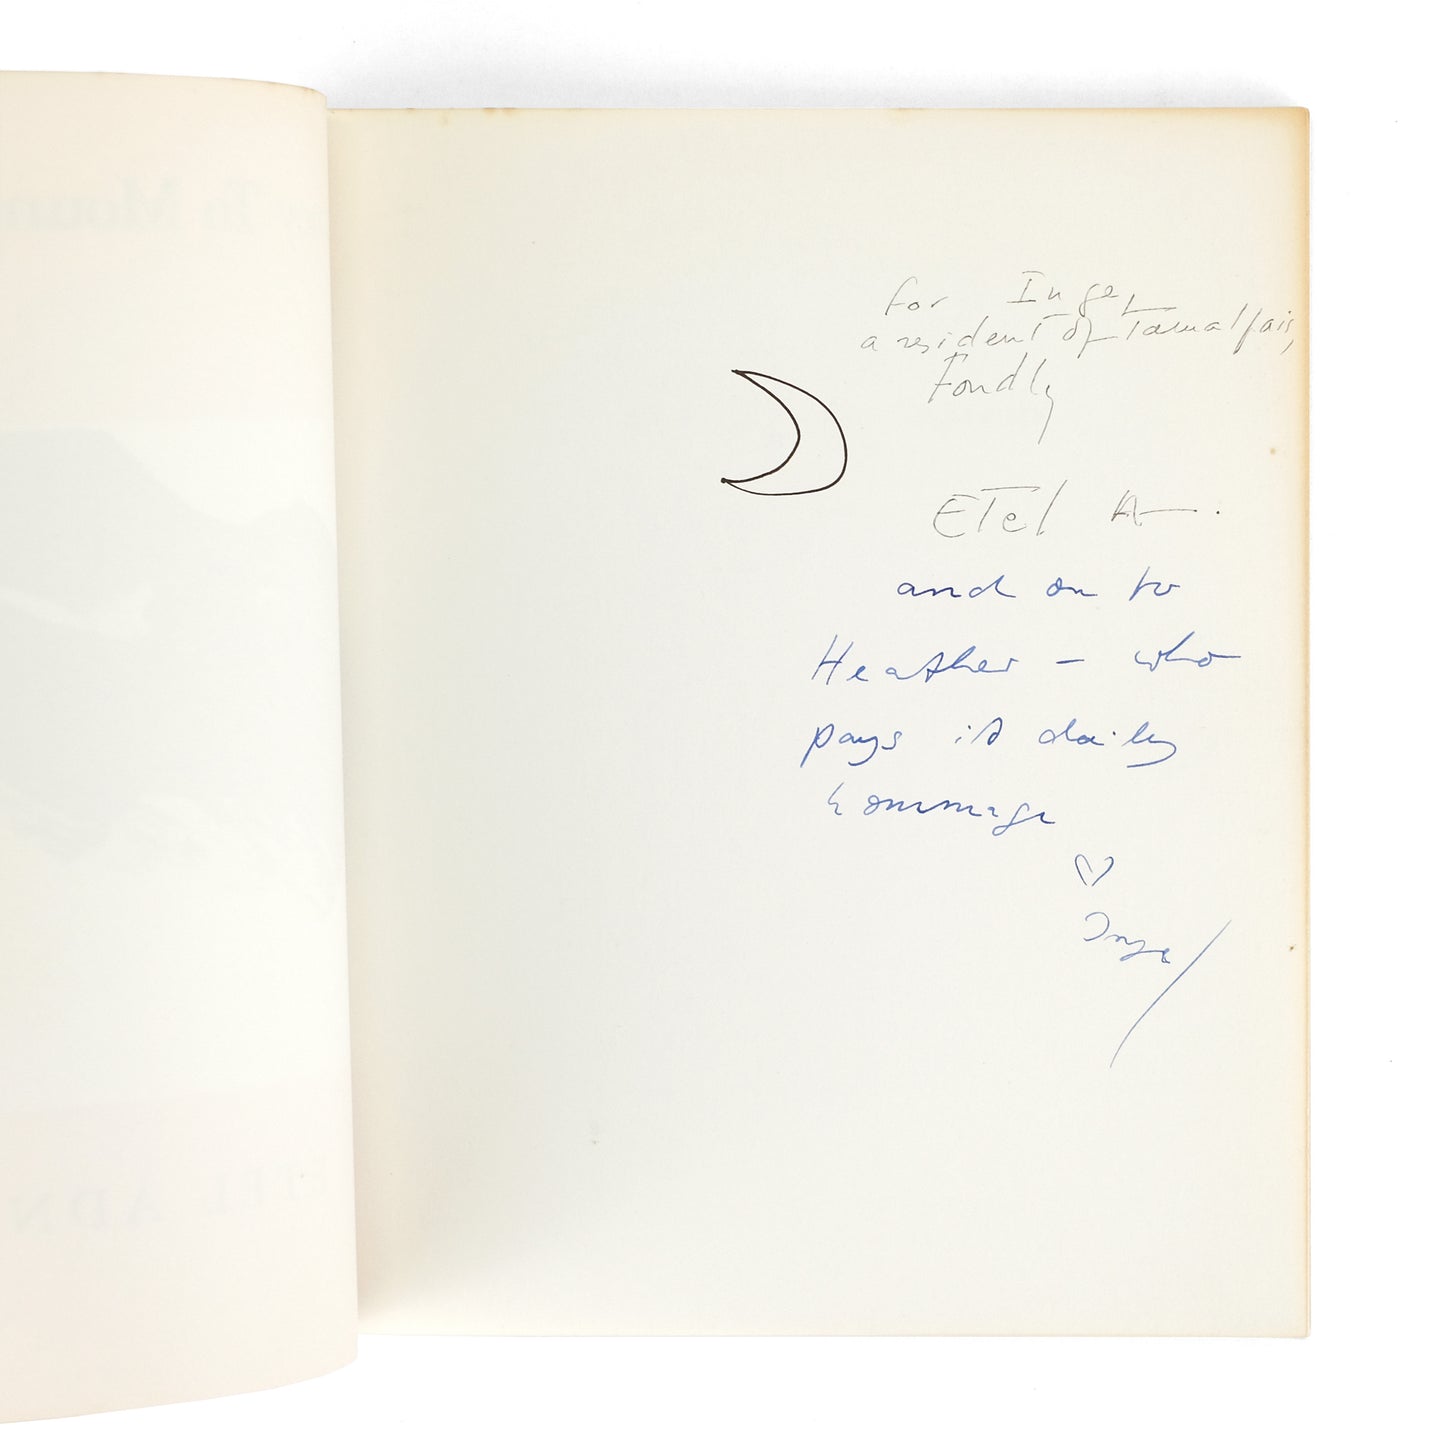 To Moun
for Inge,
a resident of Tamalpais,
Fondly
Etel A.
and on to
Heather – who
pays it daily
hommage
♡
Inge
ETEL ADN